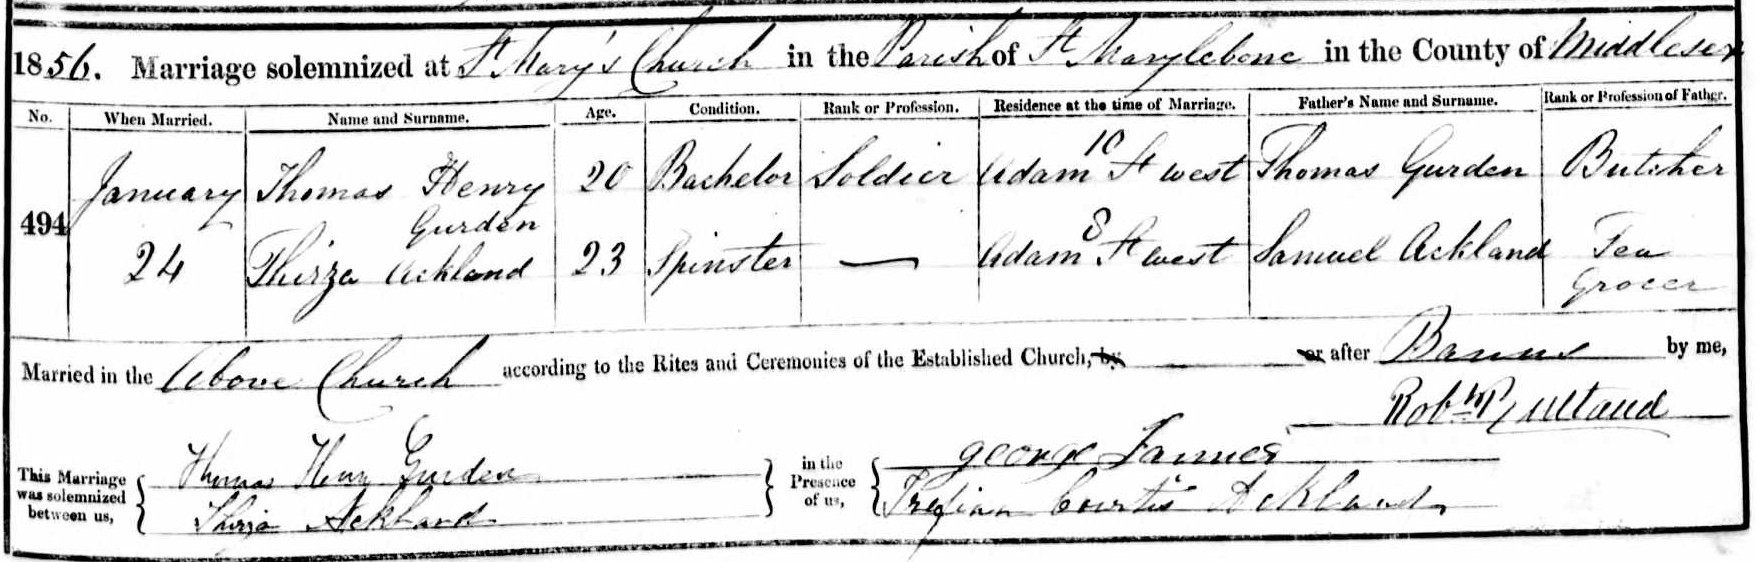 1856. Marriage solemnized at St Mary's Church in the Parish of St Marylebone in the County of Middlesex
No. When Married. Name and Surname. Age. Condition. Rank or Profession. Residence at the time of Marriage. Father's Name and Surname. Rank or Profession of Father.
494 January 24
Thomas Henry Gurden 20 Bachelor Soldier 10 Adam St west Thomas Gurden Butcher
Thirza Ackland 23 Spinster — 8 Adam St west Samuel Ackland Tea Grocer
Married in the Above Church according to the Rites and Ceremonies of the Established Church, by or after Banns by me,
Robt
This Marriage was solemnized between us, Thomas Henry Gurden
Thirza Ackland
in the Presence of us, George
Curtis Ackland